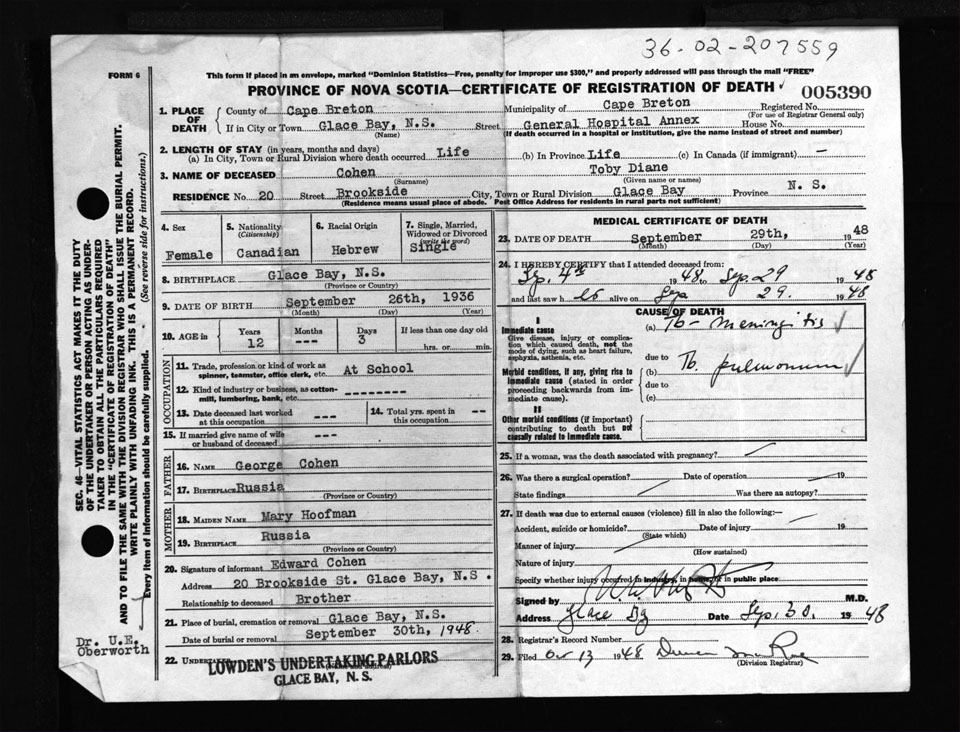 36-02-207559
FORM 6
This form if placed in an envelope, marked "Dominion Statistics—Free, penalty for improper use $300," and properly addressed will pass through the mail "FREE"
PROVINCE OF NOVA SCOTIA—CERTIFICATE OF REGISTRATION OF DEATH
005390
1. PLACE OF DEATH
County of Cape Breton Municipality of Cape Breton Registered No.
(For use of Registrar General only)
If in City or Town Glace Bay, N.S. Street General Hospital Annex House No.
(Name) (If death occurred in a hospital or institution, give the name instead of street and number)
2. LENGTH OF STAY (in years, months and days)
(a) In City, Town or Rural Division where death occurred Life (b) In Province Life (c) In Canada (if immigrant) —
3. NAME OF DECEASED Cohen Toby Diane
(Surname) (Given name or names)
RESIDENCE No. 20 Street Brookside City, Town or Rural Division Glace Bay Province N. S.
(Residence means usual place of abode. Post Office Address for residents in rural parts not sufficient)
4. Sex
Female
5. Nationality
(Citizenship)
Canadian
6. Racial Origin
Hebrew
7. Single, Married, Widowed or Divorced
(write the word)
Single
8. BIRTHPLACE Glace Bay, N.S.
(Province or Country)
9. DATE OF BIRTH September 26th, 1936
(Month) (Day) (Year)
10. AGE in
Years Months Days If less than one day old
12 --- 3 hrs. or min.
OCCUPATION
11. Trade, profession or kind of work as spinner, teamster, office clerk, etc. At School
12. Kind of industry or business, as cotton-mill, lumbering, bank, etc. ---------
13. Date deceased last worked at this occupation ---
14. Total yrs. spent in this occupation --
15. If married give name of wife or husband of deceased ---
FATHER
16. NAME George Cohen
17. BIRTHPLACE Russia
(Province or Country)
MOTHER
18. MAIDEN NAME Mary Hoofman
19. BIRTHPLACE Russia
(Province or Country)
20. Signature of informant Edward Cohen
Address 20 Brookside St. Glace Bay, N.S.
Relationship to deceased Brother
21. Place of burial, cremation or removal Glace Bay, N.S.
Date of burial or removal September 30th, 1948.
22. UNDERTAKER
LOWDEN'S UNDERTAKING PARLORS
GLACE BAY, N. S.
MEDICAL CERTIFICATE OF DEATH
23. DATE OF DEATH September 29th, 1948
(Month) (Day) (Year)
24. I HEREBY CERTIFY that I attended deceased from:
Sep. 4th 1948 to Sep. 29 1948
and last saw h alive on Sep 29. 1948
CAUSE OF DEATH
I
Immediate cause
Give disease, injury or complication which caused death, not the mode of dying, such as heart failure, asphyxia, asthenia, etc.
(a) Tb- Meningitis
due to
Morbid conditions, if any, giving rise to immediate cause (stated in order proceeding backwards from immediate cause).
(b) Tb. pulmonum
due to
(c)
II
Other morbid conditions (if important) contributing to death but not causally related to immediate cause.
25. If a woman, was the death associated with pregnancy?
26. Was there a surgical operation? Date of operation 19
State findings Was there an autopsy?
27. If death was due to external causes (violence) fill in also the following:—
Accident, suicide or homicide? Date of injury 19
(State which)
Manner of injury
(How sustained)
Nature of injury
Specify whether injury occurred in industry, in home, or in public place
Signed by M.D.
Address Glace Bay Date Sep. 30. 1948
28. Registrar's Record Number
29. Filed Oct 13 1948 Duncan MacRae
(Division Registrar)
SEC. 46—VITAL STATISTICS ACT MAKES IT THE DUTY
OF THE UNDERTAKER OR PERSON ACTING AS UNDER-
TAKER TO OBTAIN ALL THE PARTICULARS REQUIRED
IN THE "CERTIFICATE OF REGISTRATION OF DEATH"
AND TO FILE THE SAME WITH THE DIVISION REGISTRAR WHO SHALL ISSUE THE BURIAL PERMIT.
WRITE PLAINLY WITH UNFADING INK. THIS IS A PERMANENT RECORD.
Every item of information should be carefully supplied. (See reverse side for instructions.)
Dr. U.E.
Oberworth